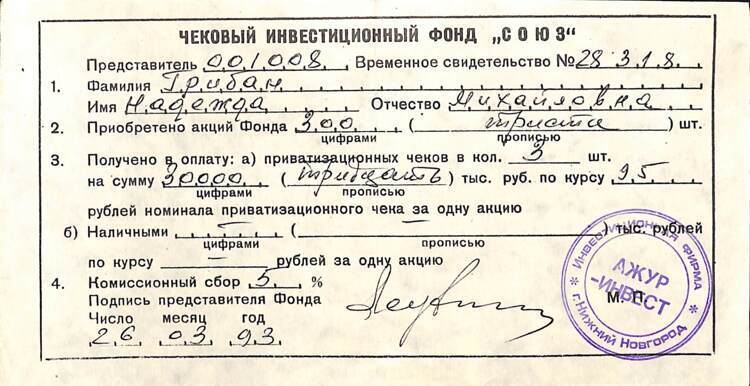 ЧЕКОВЫЙ ИНВЕСТИЦИОННЫЙ ФОНД „СОЮЗ"
Представитель 001008. Временное свидетельство № 28318.
1. Фамилия Грибан
Имя Надежда Отчество Михайловна
2. Приобретено акций Фонда 300 ( триста ) шт.
цифрами прописью
3. Получено в оплату: а) приватизационных чеков в кол. 3 шт.
на сумму 30000 ( тридцать ) тыс. руб. по курсу 95
цифрами прописью
рублей номинала приватизационного чека за одну акцию
б) Наличными — ( — ) тыс. рублей
цифрами прописью
по курсу — рублей за одну акцию
4. Комиссионный сбор 5. %
Подпись представителя Фонда М. П.
Число месяц год
26.03.93.
ИНВЕСТИЦИОННАЯ ФИРМА
АЖУР
-ИНВЕСТ
г. НИЖНИЙ НОВГОРОД